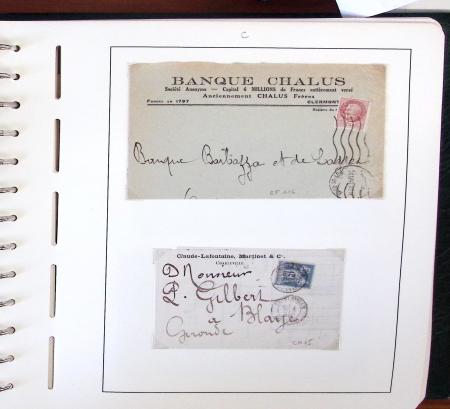 C
BANQUE CHALUS
Société Anonyme — Capital 6 MILLIONS de Francs entièrement versé
Anciennement CHALUS Frères
Fondée en 1797
CLERMONT
Banque Barbazza et de
Claude-Lafontaine, Martinet & Cie.
Charleville
Monsieur
P. Gilbert
a Blaye
Gironde